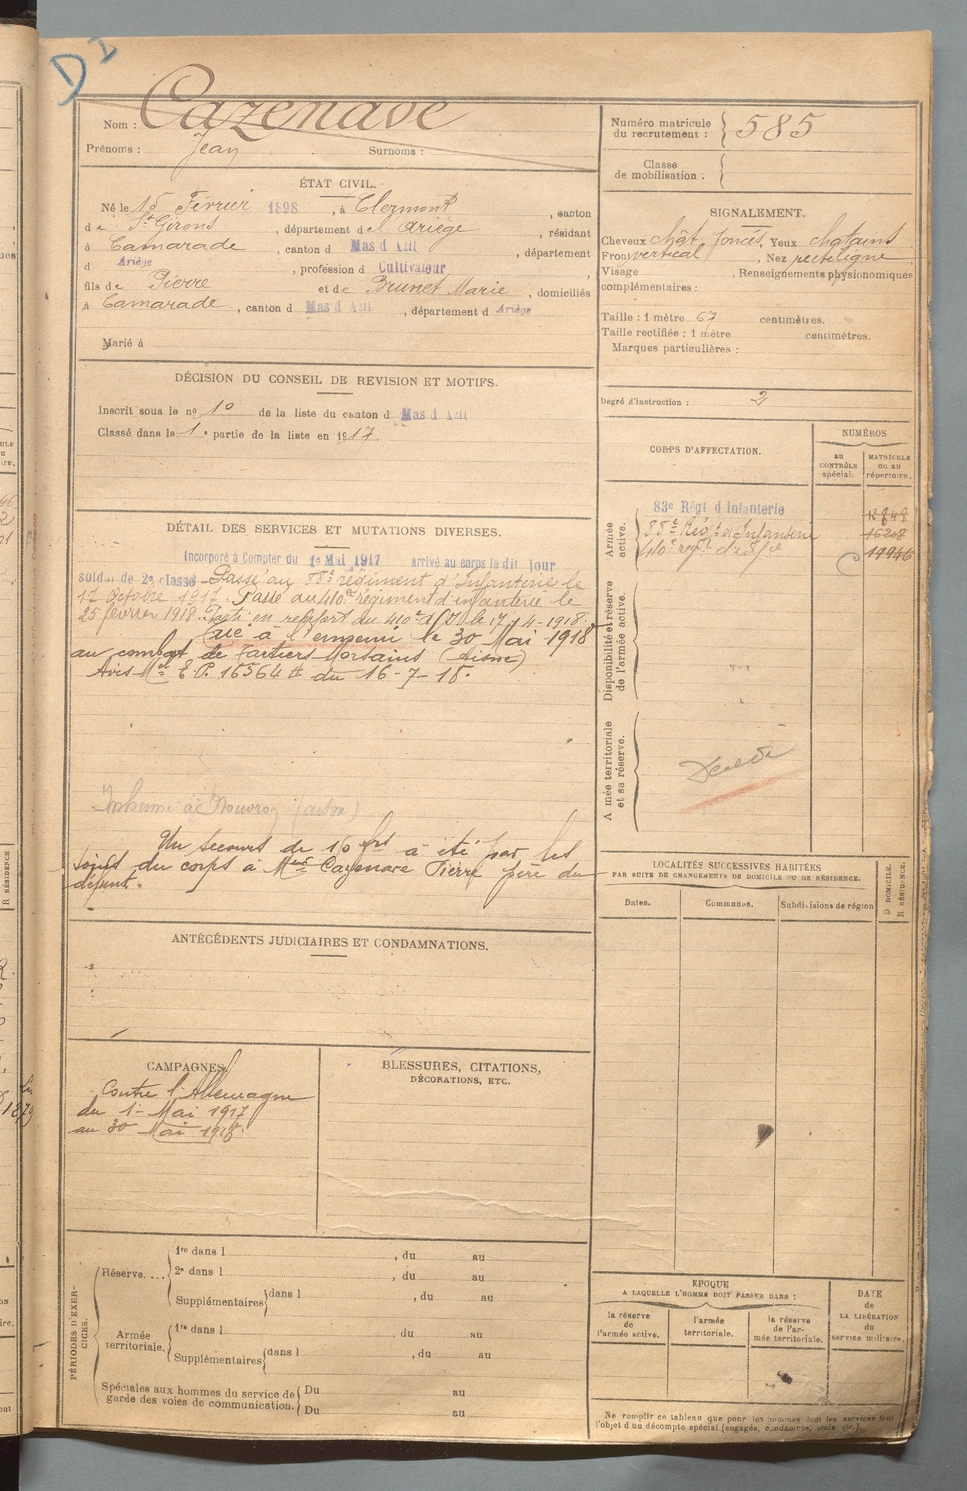 D I
Nom : Cazenave
Prénoms : Jean Surnoms :
Numéro matricule
du recrutement : 585
Classe
de mobilisation :
ÉTAT CIVIL.
Né le 15 Février 1898, à Clermont, canton
de St Girons, département del Ariège, résidant
à Camarade, canton d Mas d Azil, département
d Ariège, profession d Cultivateur,
fils de Pierre et de Brunet Marie, domiciliés
à Camarade, canton d Mas d Azil, département d Ariège
Marié à
SIGNALEMENT.
Cheveux chât foncés, Yeux chatains
Front vertical, Nez rectiligne
Visage . Renseignements physionomiques
complémentaires :
Taille : 1 mètre 67 centimètres.
Taille rectifiée : 1 mètre centimètres.
Marques particulières :
Degré d'instruction : 2
DÉCISION DU CONSEIL DE REVISION ET MOTIFS.
Inscrit sous le no 10 de la liste du canton d Mas d Azil
Classé dans la 1e partie de la liste en 1917.
DÉTAIL DES SERVICES ET MUTATIONS DIVERSES.
Incorporé à Compter du 1e Mai 1917 arrivé au corps le dit jour
soldt de 2e classe Passé au 88e régiment d'Infanterie le
17 Octobre 1917. Passé au 410e régiment d'infanterie le
25 février 1918. Parti en renfort du 410e d'I le 17-4-1918.
Tué à l'ennemi le 30 Mai 1918
au combat de Tartiers Morsains (Aisne)
Avis Mle E P. 16564 du 16-7-18.
Inhumé à Nouvron (Aisne)
Un secours de 150 frs a été par les
soins du corps à Mr Cazenave Pierre père du
défunt.
CORPS D'AFFECTATION.
NUMÉROS
AU CONTRÔLE spécial.
MATRICULE OU AU répertoire.
Armée active.
83e Régt d Infanterie
88e Régt d'Infanterie 16208
410e regt d'infie 19946
Disponibilité et réserve de l'armée active.
Armée territoriale et sa réserve.
Décédé
LOCALITÉS SUCCESSIVES HABITÉES
PAR SUITE DE CHANGEMENTS DE DOMICILE OU DE RÉSIDENCE.
Dates. Communes. Subdivisions de région
D DOMICILE.
R RÉSIDENCE.
ANTÉCÉDENTS JUDICIAIRES ET CONDAMNATIONS.
CAMPAGNES
Contre l'Allemagne
du 1er Mai 1917
au 30 Mai 1918
BLESSURES, CITATIONS,
DÉCORATIONS, ETC.
PÉRIODES D'EXERCICES.
Réserve....
1re dans l , du au
2e dans l , du au
Supplémentaires dans l , du au
Armée territoriale.
1re dans l , du au
Supplémentaires dans l , du au
Spéciales aux hommes du service de
garde des voies de communication.
Du au
Du au
EPOQUE
A LAQUELLE L'HOMME DOIT PASSER DANS :
la réserve de l'armée active.
l'armée territoriale.
la réserve de l'armée territoriale.
DATE
de
LA LIBÉRATION
du
service militaire.
Ne remplir ce tableau que pour les hommes dont les services font
l'objet d un décompte spécial (engagés, condamnés, omis etc.)